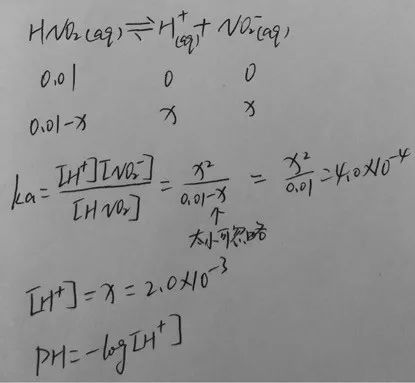 HNO₂(aq) ⇌ H⁺(aq) + NO₂⁻(aq)
0.01 0 0
0.01-x x x
ka = [H⁺][NO₂⁻] / [HNO₂] = x² / 0.01-x = x² / 0.01 = 4.0×10⁻⁴
↑
太小可忽略
[H⁺] = x = 2.0×10⁻³
PH = -log[H⁺]